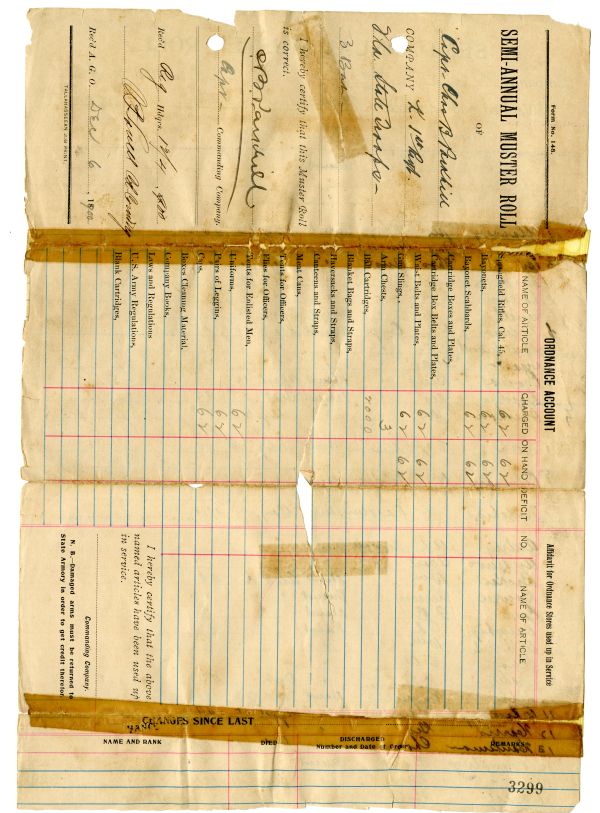 Form No. 148.
SEMI-ANNUAL MUSTER ROLL
OF
Capt. Chas B Parkhill
COMPANY K. 1st Regt.
Fla State Troops
3 Batt
I hereby certify that this Muster Roll
is correct.
CB Parkhill
Capt Commanding Company.
Rec'd Reg. Hdqrs. 12/4, 1900
Rec'd A. G. O. Dec 6, 1900
TALLAHASSEEAN JOB PRINT.
ORDNANCE ACCOUNT
NAME OF ARTICLE CHARGED ON HAND DEFICIT
Springfield Rifles, Cal. 45, 62 62
Bayonets, 62 62
Bayonet Scabbards, 62 62
Cartridge Boxes and Plates,
Cartridge Box Belts and Plates,
Waist Belts and Plates, 62 62
Gun Slings, 62 62
Arm Chests, 3
Ball Cartridges, 7000
Blanket Bags and Straps,
Haversacks and Straps,
Canteens and Straps,
Meat Cans,
Tents for Officers,
Flies for Officers,
Tents for Enlisted Men,
Uniforms, 62
Pairs of Leggins, 62
Caps, 62
Boxes Cleaning Material
Company Books,
Laws and Regulations
U. S. Army Regulations,
Blank Cartridges,
Affidavit for Ordnance Stores used up in Service
NO. NAME OF ARTICLE
I hereby certify that the above
named articles have been used up
in service.
Commanding Company.
N. B.—Damaged arms must be returned to
State Armory in order to get credit therefor.
CHANGES SINCE LAST
NAME AND RANK DIED DISCHARGED
Number and Date of Order REMARKS
3299